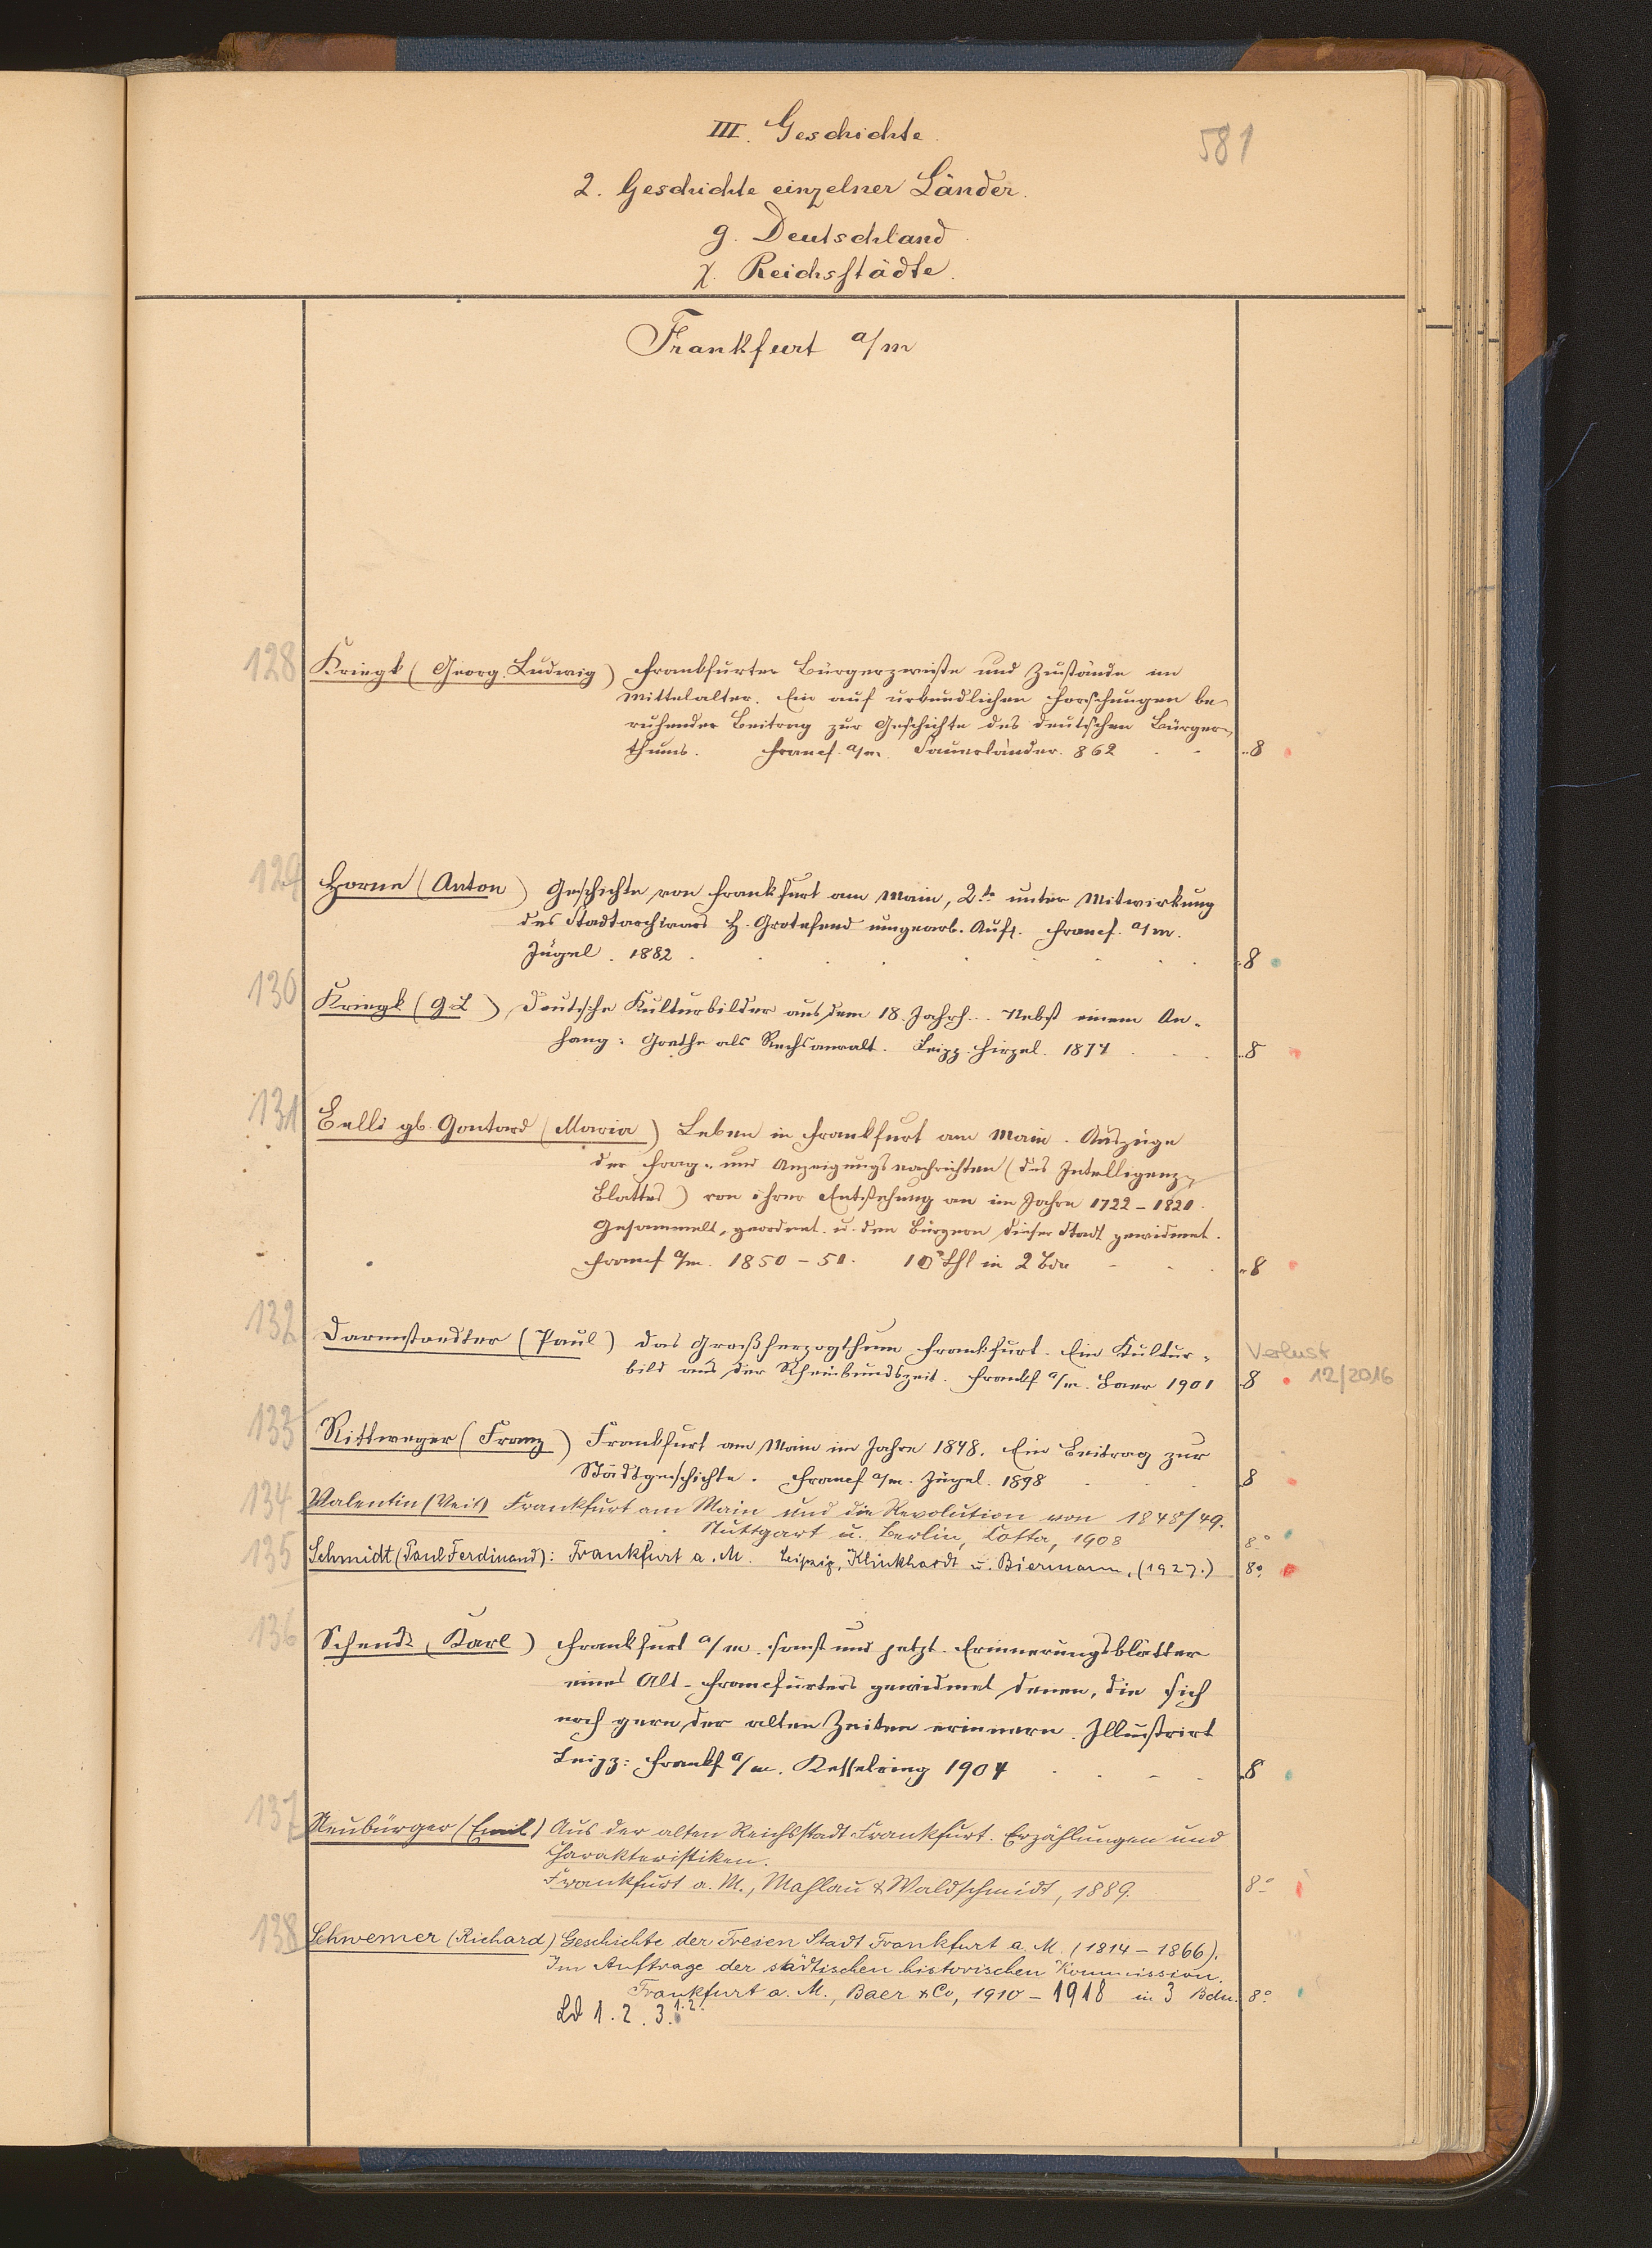 III. Geschichte.
581
2. Geschichte einzelner Länder.
g. Deutschland
χ. Reichsstädte.
Frankfurt a/m
128 Kriegk (Georg Ludwig) Frankfurter Bürgerzwiste und Zustände im
Mittelalter. Ein auf urkundlichen Forschungen be-
ruhender Beitrag zur Geschichte des deutschen Bürger-
thums. Francf. a/m. Sauerländer. 862 8
129 Horne (Anton) Geschichte von Frankfurt am Main, 2te unter Mitwirkung
des Stadtarchivars H. Grotefend umgearb. Aufl. Francf. a/m.
Jügel. 1882 8
130 Kriegk (G L) Deutsche Kulturbilder aus dem 18. Jahrh. Nebst einem An-
hang: Goethe als Rechtsanwalt. Leipz. Hirzel. 1874 8
131 Belli gb. Gontard (Maria) Leben in Frankfurt am Main. Auszüge
der Frag- und Anzeigungsnachrichten (des Intelligenz-
Blattes) von ihrer Entstehung an im Jahre 1722 – 1821.
Gesammelt, geordnet u. den Bürgern dieser Stadt gewidmet.
Francf a/m. 1850 – 51. 10 Thl in 2 Bde 8
132 Darmstaedter (Paul) Das Großherzogthum Frankfurt. Ein Kultur-
bild aus der Rheinbundszeit. Frankf a/m. Baer 1901 8
Verlust
12/2016
133 Rittweger (Franz) Frankfurt am Main im Jahre 1848. Ein Beitrag zur
Stadtgeschichte. Francf a/m. Jügel. 1898 8
134 Valentin (Veit) Frankfurt am Main und die Revolution von 1848/49.
Stuttgart u. Berlin, Cotta, 1908 8°
135 Schmidt (Paul Ferdinand): Frankfurt a. M. Leipzig, Klinkhardt u. Biermann, (1927.) 8°.
136 Schenck (Karl) Frankfurt a/m. sonst und jetzt. Erinnerungsblätter
eines Alt-Francfurters gewidmet denen, die sich
noch gern der alten Zeiten erinnern. Illustrirt
Leipz: Frankf a/m. Kesselring 1904 8
137 Neubürger (Emil) Aus der alten Reichsstadt Frankfurt. Erzählungen und
Charakteristiken.
Frankfurt a. M., Mahlau & Waldschmidt, 1889. 8°
138 Schwemer (Richard) Geschichte der Freien Stadt Frankfurt a. M. (1814 – 1866).
Im Auftrage der städtischen historischen Kommission.
Frankfurt a. M., Baer & Co, 1910 – 1918 in 3 Bdn. 8°
Bd 1. 2. 3.1.2.